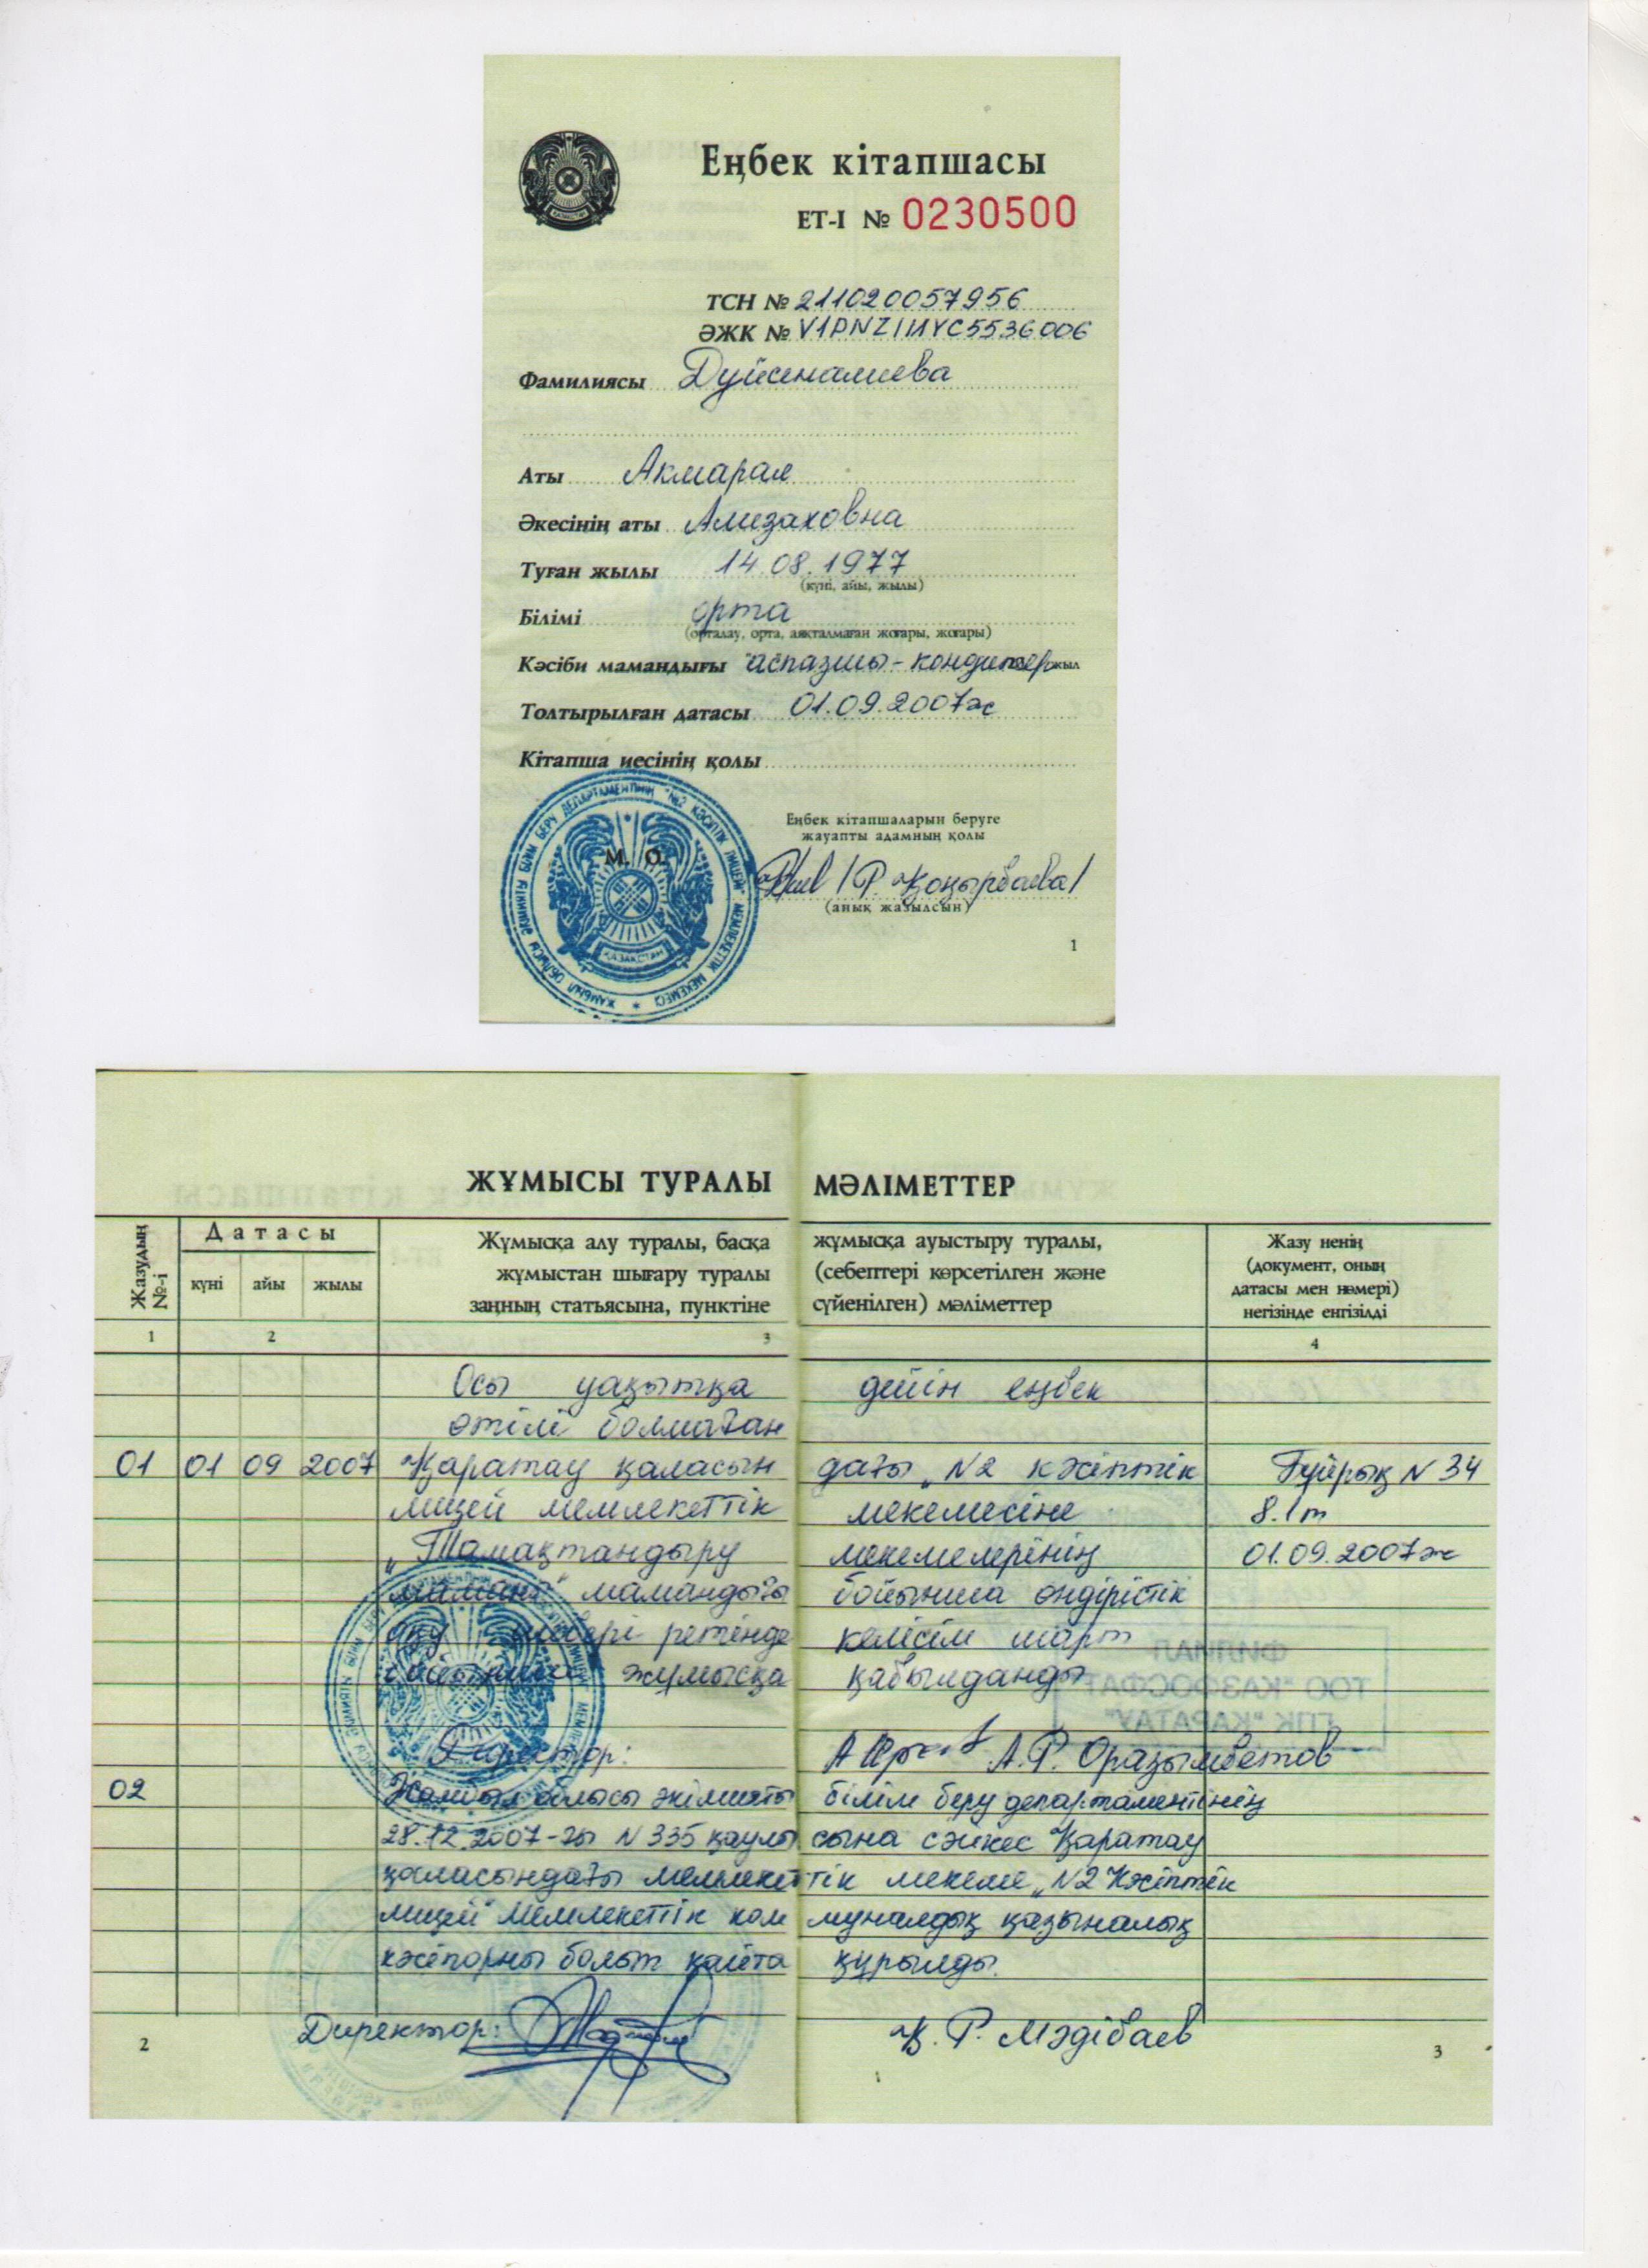 Еңбек кітапшасы
ET-I № 0230500
ТСН № 211020057956
ӘЖК № V1PNZIИYC5536006
Фамилиясы Дуйсеналиева
Аты Акмарал
Әкесінің аты Ализаховна
Туған жылы 14.08.1977
(күні, айы, жылы)
Білімі орта
(орталау, орта, аяқталмаған жоғары, жоғары)
Кәсіби мамандығы аспазшы-кондитер жыл
Толтырылған датасы 01.09.2007ж
Кітапша иесінің қолы
Еңбек кітапшаларын беруге
жауапты адамның қолы
М. О.
/Р. Қоңырбаева/
(анық жазылсын)
ҚАЗАҚСТАН
ЖАМБЫЛ ОБЛЫСЫ ӘКІМИЯТЫ БІЛІМ БЕРУ ДЕПАРТАМЕНТІНІҢ "№2 КӘСІПТІК ЛИЦЕЙ" МЕМЛЕКЕТТІК МЕКЕМЕСІ
1
ЖҰМЫСЫ ТУРАЛЫ МӘЛІМЕТТЕР
Жазудың №-і
Датасы
күні айы жылы
Жұмысқа алу туралы, басқа жұмысқа ауыстыру туралы,
жұмыстан шығару туралы (себептері көрсетілген және
заңның статьясына, пунктіне сүйенілген) мәліметтер
Жазу ненің
(документ, оның
датасы мен нөмері)
негізінде енгізілді
1 2 3 4
Осы уақытқа дейін еңбек
өтілі болмаған
01 01 09 2007 Қаратау қаласын дағы „N2 кәсіптік Бұйрық N 34
лицей мемлекеттік мекемесіне 8.1т
„Тамақтандыру мекемелерінің 01.09.2007ж
маманы" мамандығы бойынша өндірістік
оқу шебері ретінде келісім шарт
бойынша жұмысқа қабылданды
Директор: А.Р. Оразымбетов
02 Жамбыл облысы әкімияты білім беру департаментінің
28.12.2007-ғы N 335 қаулы сына сәйкес Қаратау
қаласындағы мемлекет тік мекеме „N2 Кәсіптік
лицей" мемлекеттік ком муналдық қазыналық
кәсіпорны болып қайта құрылды.
Директор: Қ. Р. Мәдібаев
ФИЛИАЛ
ТОО "КАЗФОСФАТ"
ГПК "КАРАТАУ"
2
3